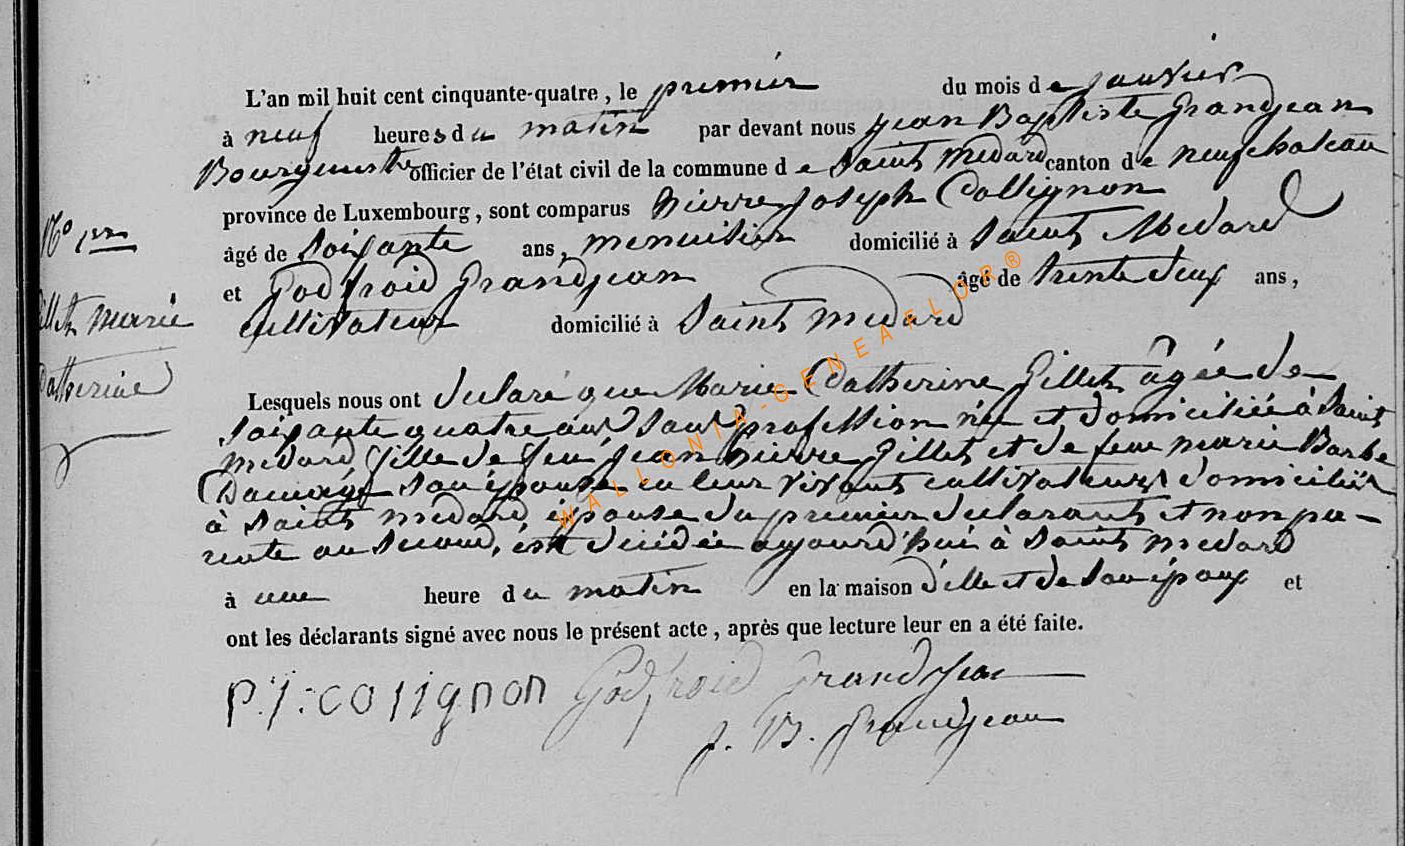 L'an mil huit cent cinquante-quatre, le premier du mois de janvier
à neuf heures du matin par devant nous jean Baptiste Grandjean
Bourgmestre officier de l'état civil de la commune de Saint Medard canton de neufchateau
province de Luxembourg, sont comparus pierre joseph Collignon
âgé de soixante ans, menuisier domicilié à Saint Medard
et Godfroid Grandjean âgé de trente deux ans,
cultivateur domicilié à Saint medard
N° 1er
Gillet marie
Catherine
Lesquels nous ont declaré que Marie Catherine Gillet âgée de
soixante quatre ans sans profession née et domiciliée à Saint
medard fille de feu jean pierre Gillet et de feue marie Barbe
son épouse en leur vivants cultivateurs domiciliés
à Saint medard, épouse du premier declarant et non pa-
rente au second, est décédée aujourd'hui à Saint medard
à une heure du matin en la maison d'elle et de son époux et
ont les déclarants signé avec nous le présent acte, après que lecture leur en a été faite.
p.j.colignon Godfroid Grandjean
j. B. Grandjean
WALLONIA-GENEAFLOR®